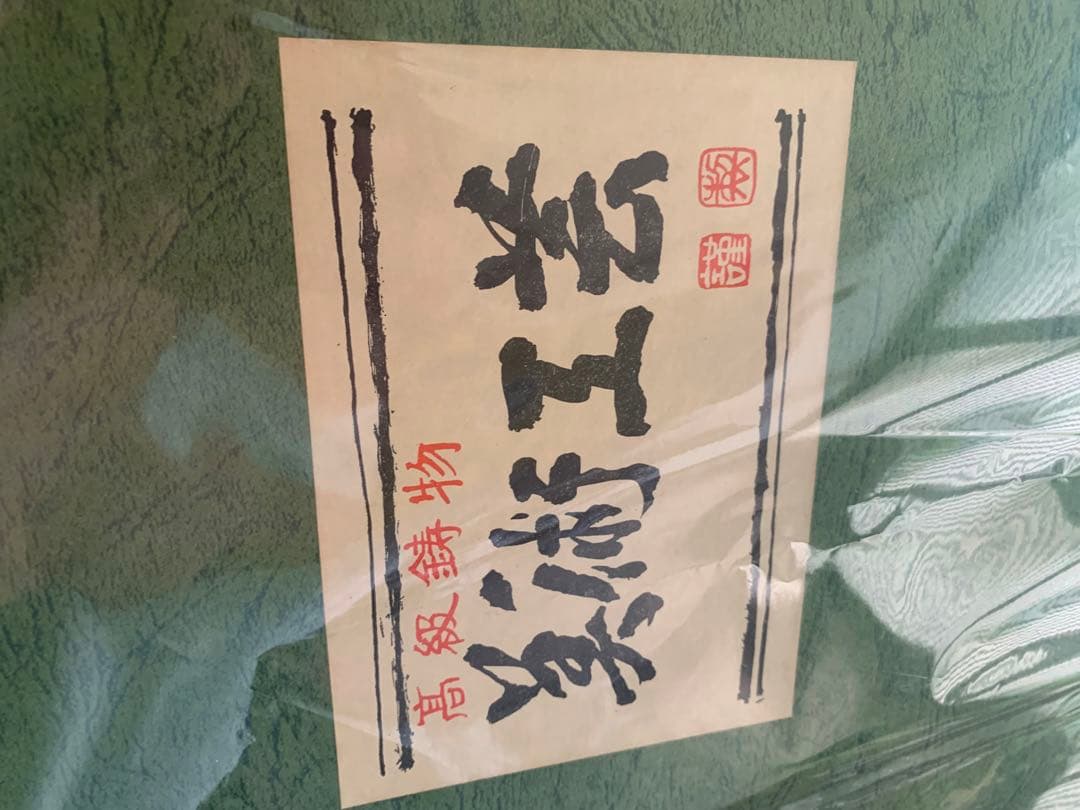 髙級鋳物
美術工芸
謹製